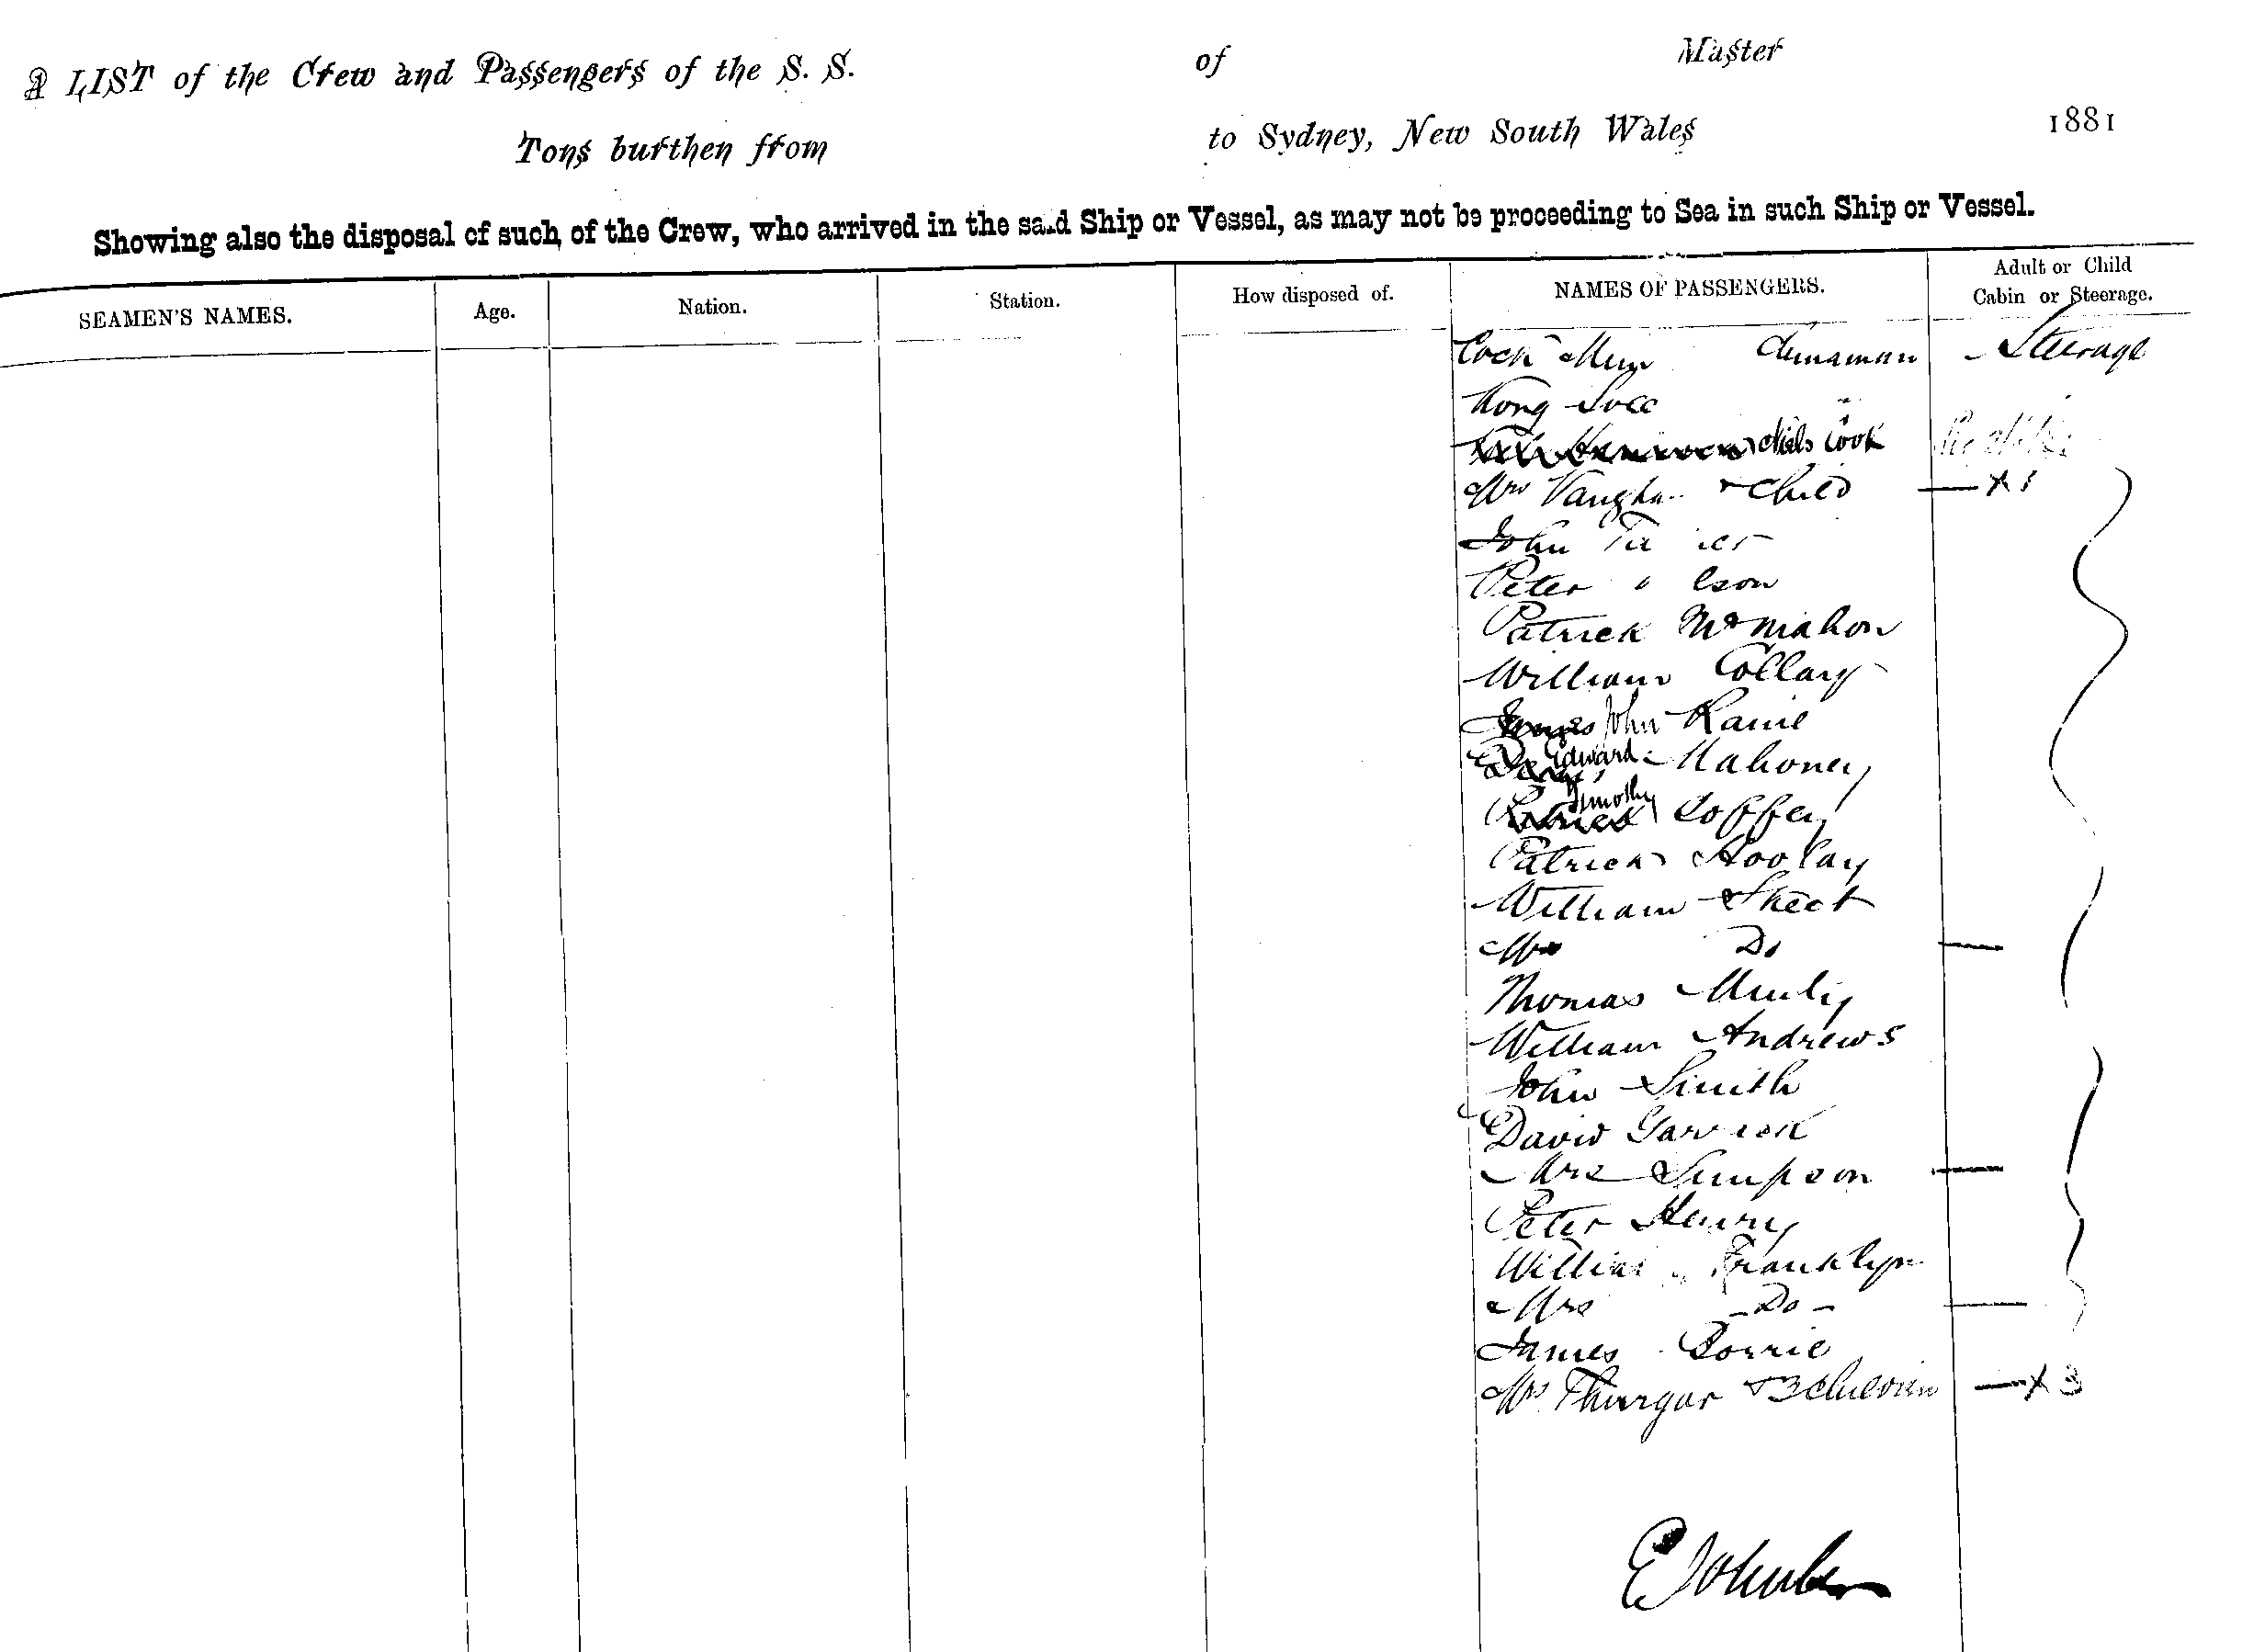 A LIST of the Crew and Passengers of the S. S. of Master
Tons burthen from to Sydney, New South Wales 1881
Showing also the disposal of such of the Crew, who arrived in the said Ship or Vessel, as may not be proceeding to Sea in such Ship or Vessel.
SEAMEN'S NAMES. Age. Nation. Station. How disposed of. NAMES OF PASSENGERS. Adult or Child
Cabin or Steerage.
Chinaman Steerage
Kong
Niels Cook
Mrs Vaughan + Child — x 1
John
Peter
Patrick McMahon
William Collary
James John Rame
Edward Mahoney
Timothy Coffey
Patrick Hoolay
William Skeet
Mrs Do —
Thomas
William Andrews
John Smith
David Garrick
Mrs Simpson —
Peter Henry
William Franklyn
Mrs - Do - —
James Borrie
Mrs Thurgar + 3 Children — x 3